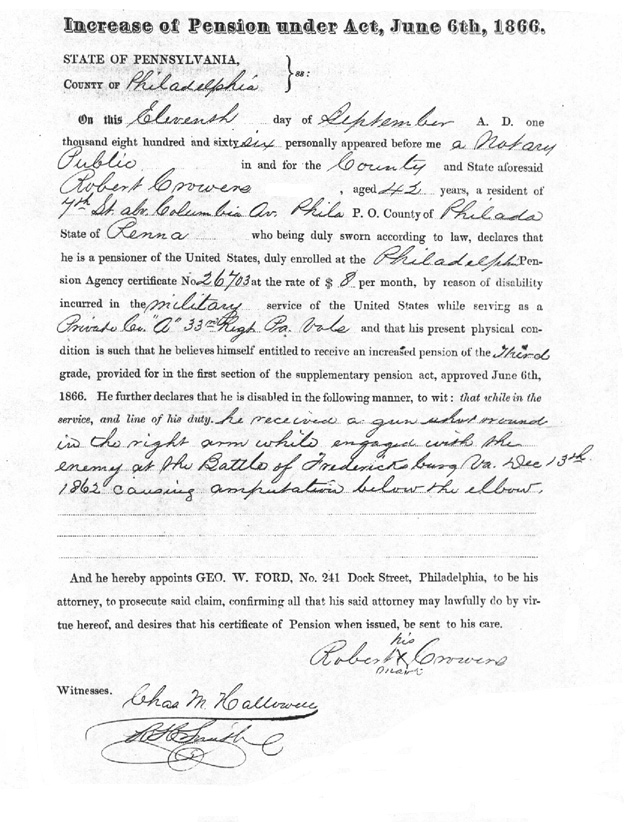 Increase of Pension under Act, June 6th, 1866.
STATE OF PENNSYLVANIA,
COUNTY OF Philadelphia } ss:
On this Eleventh day of September A. D. one
thousand eight hundred and sixty six personally appeared before me a Notary
Public in and for the County and State aforesaid
Robert Crowers , aged 42 years, a resident of
7th St. abv. Columbia Av. Phila P. O. County of Philada
State of Penna who being duly sworn according to law, declares that
he is a pensioner of the United States, duly enrolled at the Philadelph Pen-
sion Agency certificate No. 26703 at the rate of $ 8 per month, by reason of disability
incurred in the military service of the United States while serving as a
Private Co. "A" 33rd Regt. Pa. Vols and that his present physical con-
dition is such that he believes himself entitled to receive an increased pension of the Third
grade, provided for in the first section of the supplementary pension act, approved June 6th,
1866. He further declares that he is disabled in the following manner, to wit: that while in the
service, and line of his duty. he received a gun shot wound
in the right arm while engaged with the
enemy at the Battle of Fredericksburg Va. Dec 13th
1862 causing amputation below the elbow.
And he hereby appoints GEO. W. FORD, No. 241 Dock Street, Philadelphia, to be his
attorney, to prosecute said claim, confirming all that his said attorney may lawfully do by vir-
tue hereof, and desires that his certificate of Pension when issued, be sent to his care.
his
Robert X Crowers
mark
Witnesses. Chas M. Hallowell
Smith